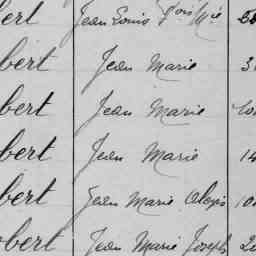 bert Jean Louis
bert Jean Marie 3
bert Jean Marie
bert Jean Marie 14
bert Jean Marie Aloys 10
obert Jean Marie Joseph 20